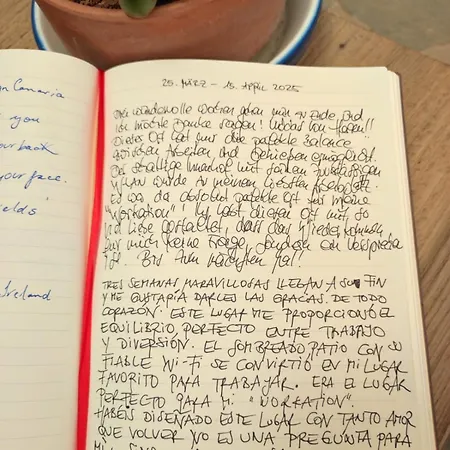 n Canaria
you
our back
your face.
elds
Ireland
25. MÄRZ – 15. APRIL 2025
Drei wundervolle Wochen gehen nun zu Ende und
ich möchte Danke sagen! von
Dieser Ort hat mir die perfekte Balance
zwischen Arbeiten und ermöglicht.
Der schattige Innenhof mit seinem zuverlässigen
WLAN wurde zu meinem liebsten
Es war der absolut perfekte Ort für meine
"Workation"! Ihr habt diesen Ort mit so
viel Liebe gestaltet, dass das Wiederkommen
für mich keine Frage, sondern ein Versprechen
ist. Bis zum nächsten Mal!
TRES SEMANAS MARAVILLOSAS LLEGAN A SU FIN
Y ME GUSTARÍA DARLES LAS GRACIAS DE TODO
CORAZÓN. ESTE LUGAR ME PROPORCIONÓ EL
EQUILIBRIO PERFECTO ENTRE TRABAJO
Y DIVERSIÓN. EL SOMBREADO PATIO CON SU
FIABLE WI-FI SE CONVIRTIÓ EN MI LUGAR
FAVORITO PARA TRABAJAR. ERA EL LUGAR
PERFECTO PARA MI "WORKATION".
HABÉIS DISEÑADO ESTE LUGAR CON TANTO AMOR
QUE VOLVER NO ES UNA PREGUNTA PARA